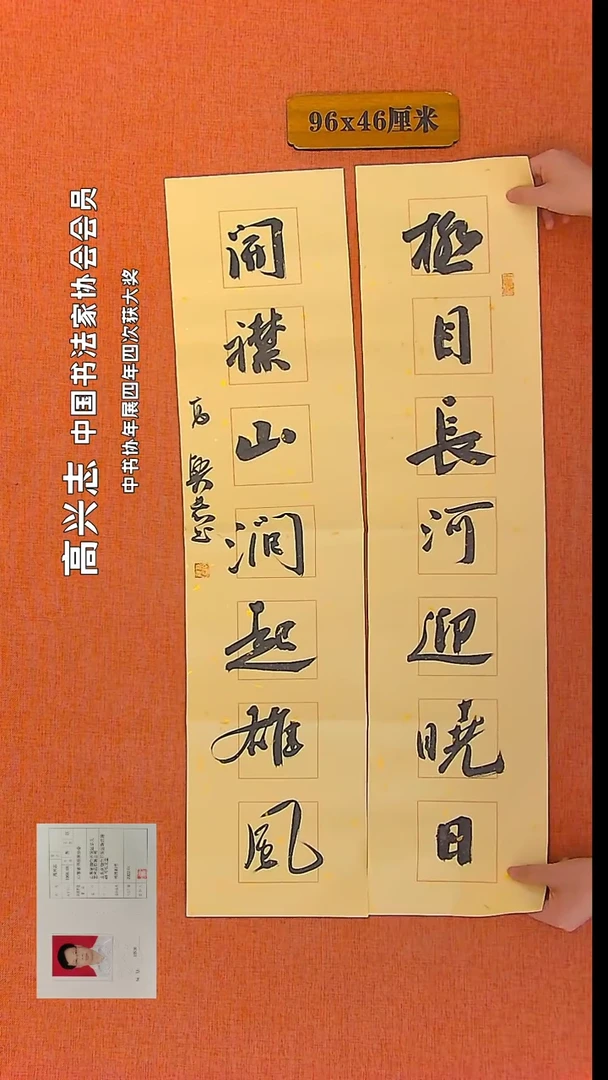 96x46厘米
極目長河迎曉日
開襟山澗起雄風
高興志
高兴志 中国书法家协会会员
中书协年展四年四次获大奖